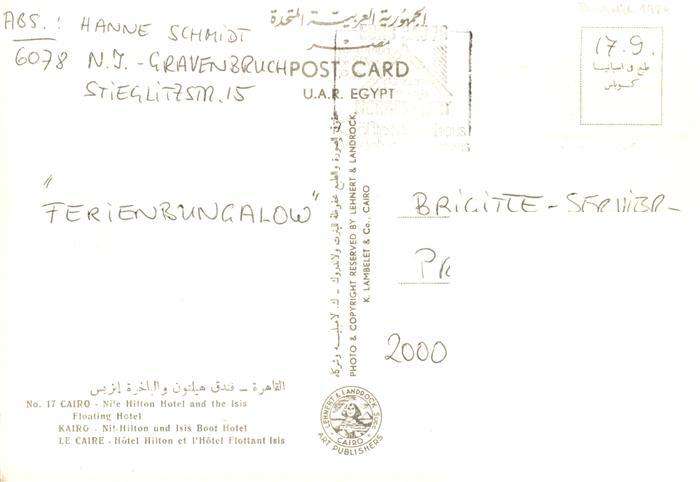 ABS.: HANNE SCHMIDT
6078 N.J. - GRAVENBRUCH
STIEGLITZSTR. 15
الجمهورية العربية المتحدة
مصر
POST CARD
U.A.R. EGYPT
17.9.
طبع في اسبانيا
"FERIENBUNGALOW"
BRIGITTE -
2000
PHOTO & COPYRIGHT RESERVED BY LEHNERT & LANDROCK,
K. LAMBELET & Co., CAIRO
القاهرة – فندق هيلتون والباخرة إيزيس
No. 17 CAIRO - Nile Hilton Hotel and the Isis
Floating Hotel
KAIRO - Nil-Hilton und Isis Boot Hotel
LE CAIRE - Hôtel Hilton et l'Hôtel Flottant Isis
LEHNERT & LANDROCK SUCC.
CAIRO
ART PUBLISHERS